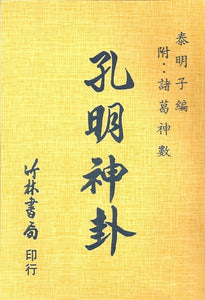 泰明子編
附：諸葛神數
孔明神卦
竹林書局
印行